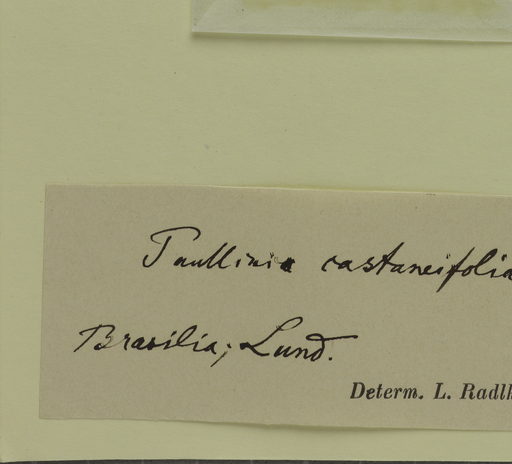 Paullinia castaneifolia
Brasilia; Lund.
Determ. L. Radlk